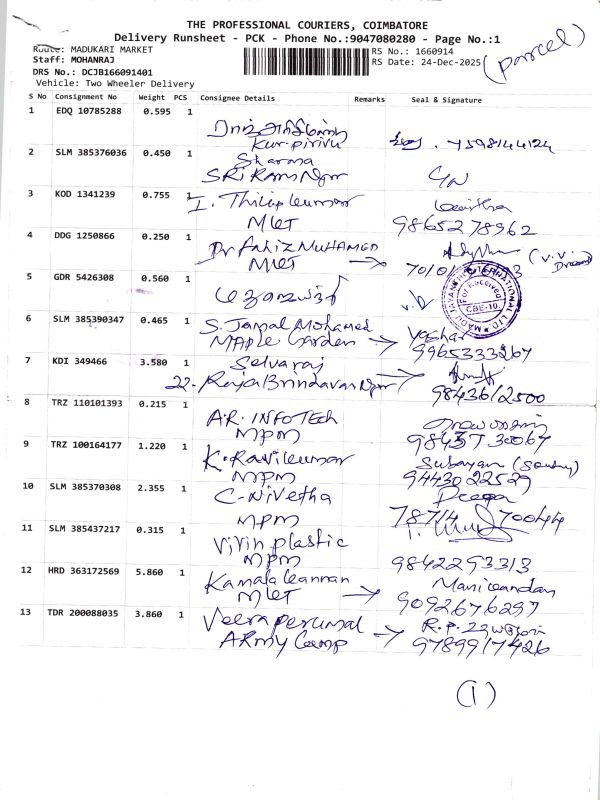 THE PROFESSIONAL COURIERS, COIMBATORE
Delivery Runsheet - PCK - Phone No.:9047080280 - Page No.:1
(Parcel)
Route: MADUKARI MARKET
RS No.: 1660914
Staff: MOHANRAJ
RS Date: 24-Dec-2025
DRS No.: DCJB166091401
Vehicle: Two Wheeler Delivery
S No Consignment No Weight PCS Consignee Details Remarks Seal & Signature
1 EDQ 10785288 0.595 1
Kurpirivu
2 SLM 385376036 0.450 1 Sharma
SRI Ram Ngr
3 KOD 1341239 0.755 1 I. Thilip kumar
MKT 9865278962
4 DDG 1250866 0.250 1 Dr Fakiz MUHAMED
MKT →
5 GDR 5426308 0.560 1
MADHU JAYANTHI INTERNATIONAL LTD
For Received
CBE-10.
6 SLM 385390347 0.465 1 S. Jamal Mohamed
MAPle Garden → 9965333267
7 KDI 349466 3.580 1 Selvaraj
22. Raja Brindavan Ngr → 9843612500
8 TRZ 110101393 0.215 1 A.R. INFOTECH
MPM 9843730067
9 TRZ 100164177 1.220 1 K. Ravikumar
MPM 9443022529
10 SLM 385370308 2.355 1 C-Nivetha Deepa
MPM 78714 70044
11 SLM 385437217 0.315 1 Vivin plastic
MPM 9842293313
12 HRD 363172569 5.860 1 Kamalakannan Manikandan
MKT → 9092676297
13 TDR 200088035 3.860 1 Veeraperumal
ARmy Camp → 9789917426
(1)